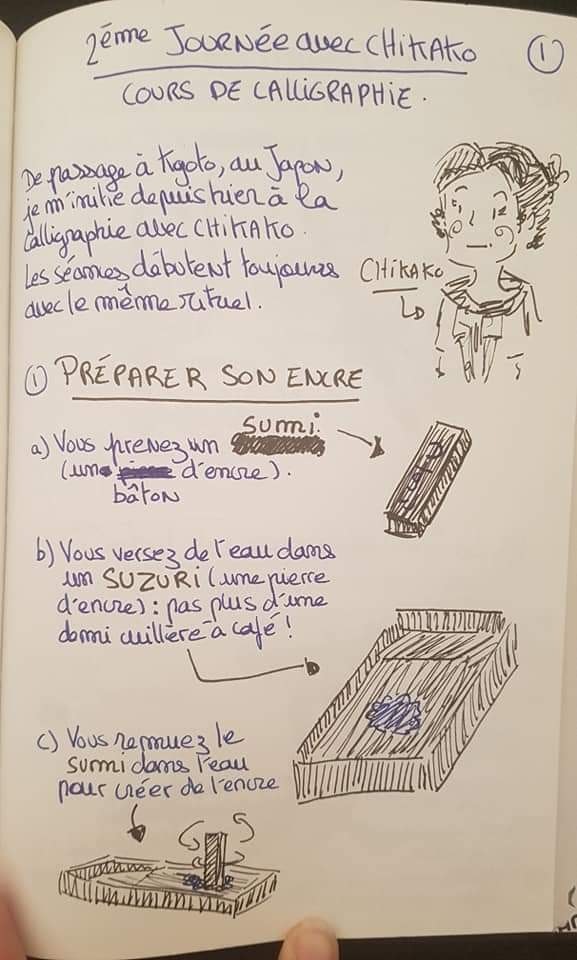 2éme JOURNÉE avec CHIKAKO
①
COURS DE CALLIGRAPHIE.
De passage à Kyoto, au Japon,
je m'initie depuis hier à la
calligraphie avec CHIKAKO.
Les séances débutent toujours
avec le même rituel.
CHIKAKO
① PRÉPARER SON ENCRE
sumi.
a) Vous prenez un
(un d'encre).
bâton
b) Vous versez de l'eau dans
un SUZURI (une pierre
d'encre) : pas plus d'une
demi cuillère à café !
c) Vous remuez le
sumi dans l'eau
pour créer de l'encre